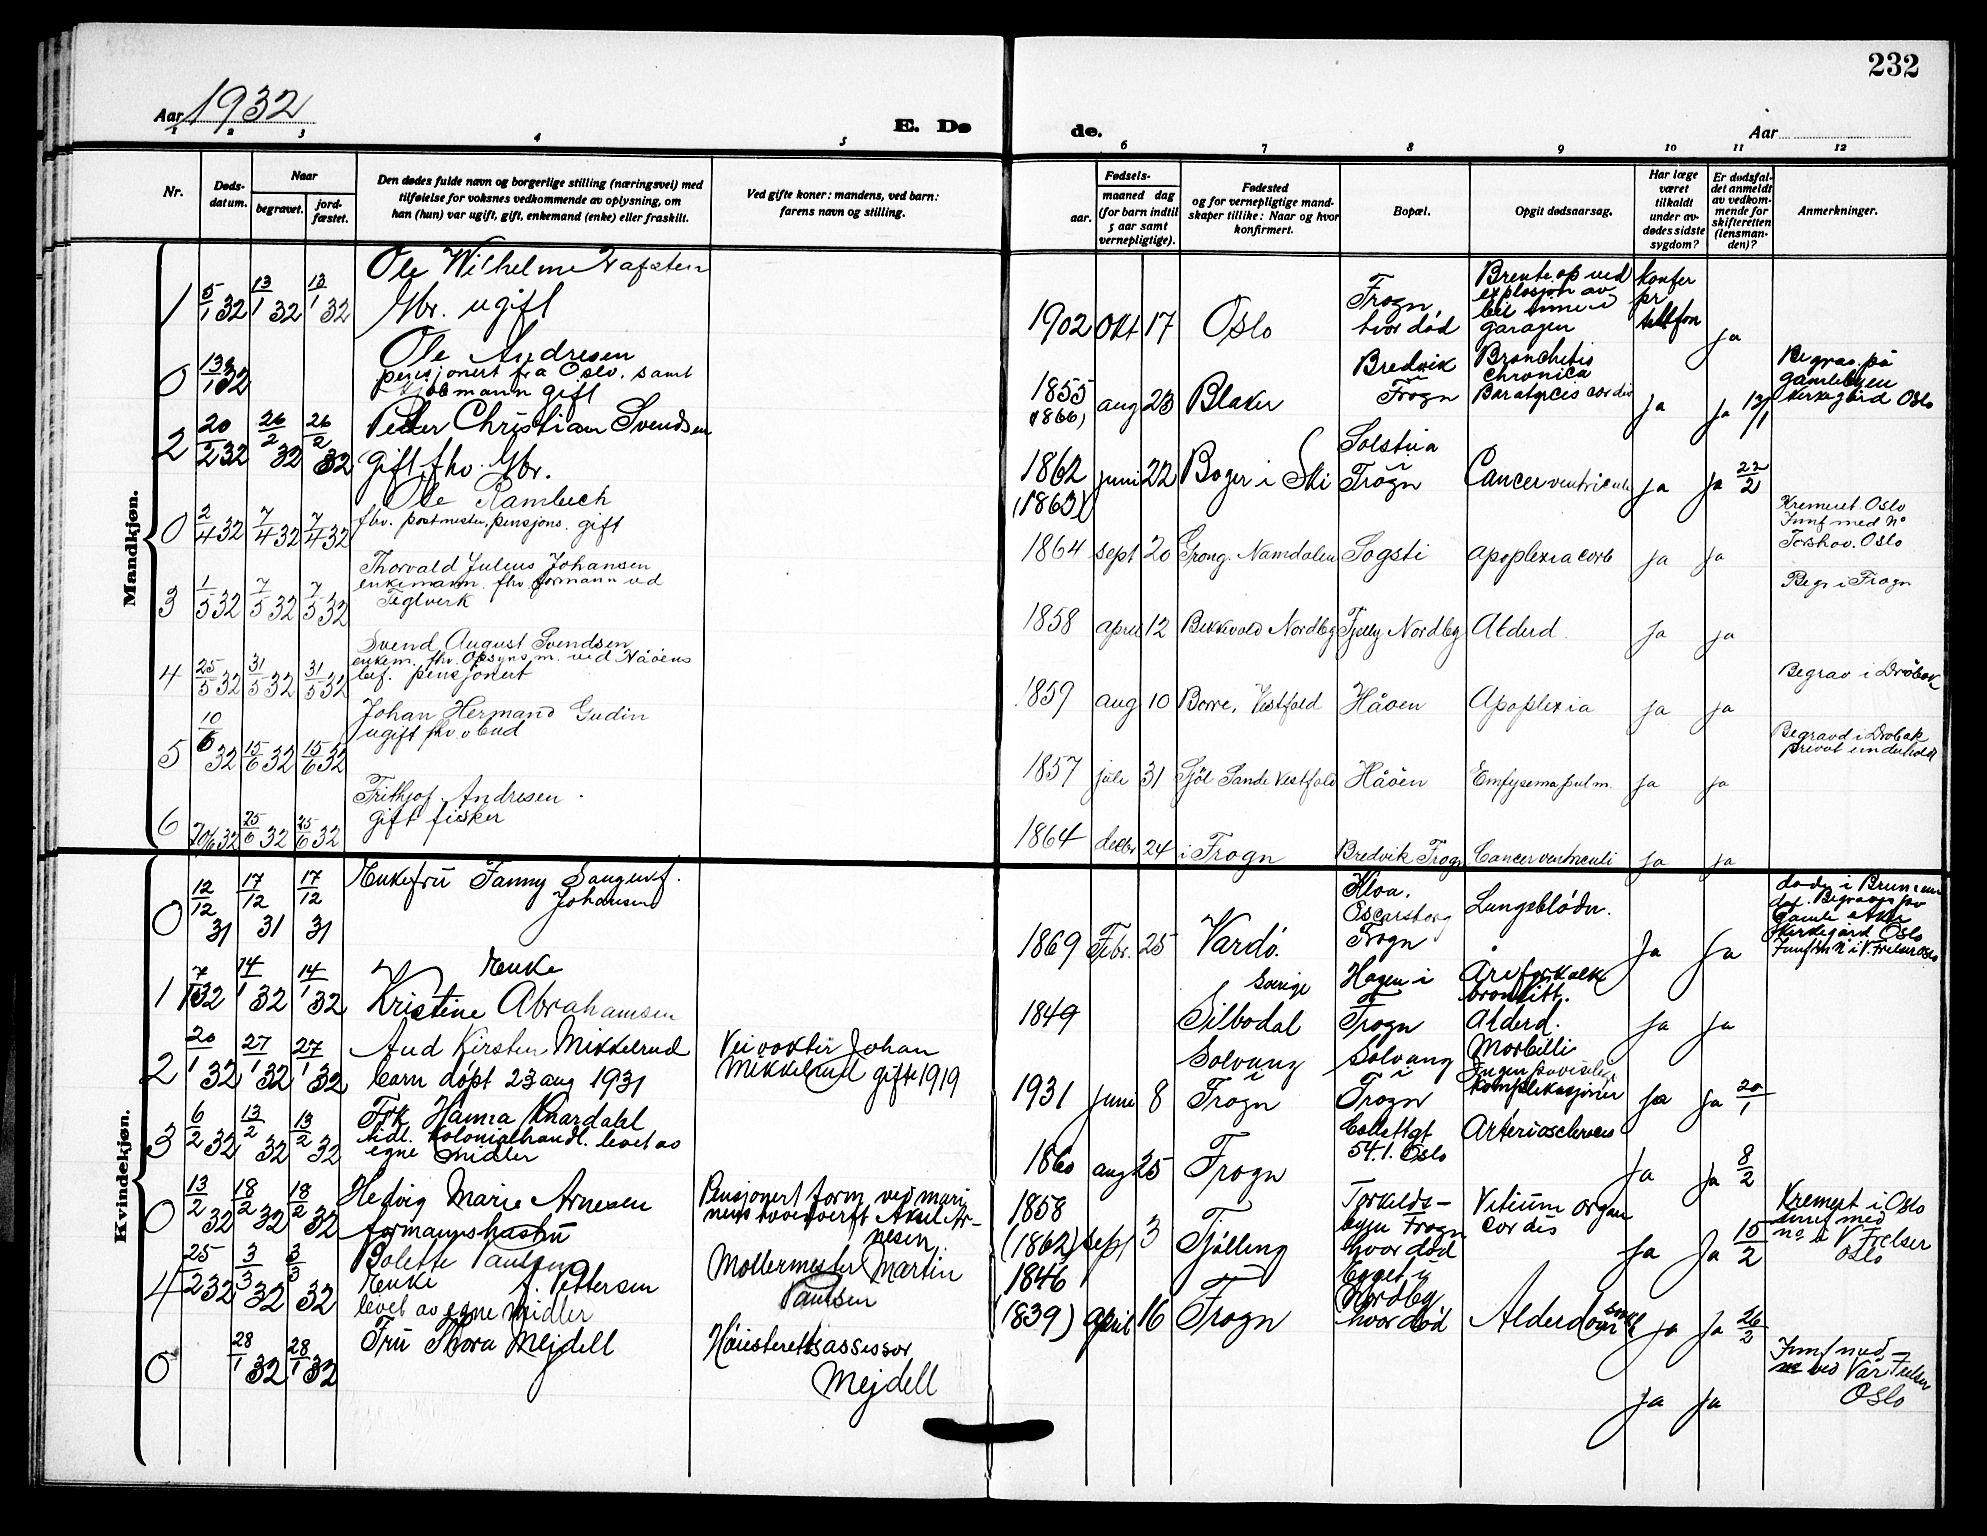 232
Aar 1932
E. Dø
de.
Aar
1 2 3 4 5 6 7 8 9 10 11 12
Nr.
Døds-
datum.
Naar
begravet.
jord-
fæstet.
Den dødes fulde navn og borgerlige stilling (næringsvei) med
tilføielse for voksnes vedkommende av oplysning, om
han (hun) var ugift, gift, enkemand (enke) eller fraskilt.
Ved gifte koner: mandens, ved barn:
farens navn og stilling.
Fødsels-
aar.
maaned dag
(for barn indtil
5 aar samt
vernepligtige).
Fødested
og for vernepligtige mand-
skaper tillike: Naar og hvor
konfirmert.
Bopæl.
Opgit dødsaarsag.
Har læge
været
tilkaldt
under av-
dødes sidste
sygdom?
Er dødsfal-
det anmeldt
av vedkom-
mende for
skifteretten
(lensman-
den)?
Anmerkninger.
Mandkjøn.
1 5/1 32 13/1 32 13/1 32
Ole Wilhelm
Gbr. ugift
1902 Okt 17 Oslo
Frogn,
hvor død
Brente op ved
explosjon av
bil inne i
garagen
konfer
pr
telefon
ja
0 13/1 32
Ole Andresen
pensjonert fra Oslo. samt
gift
1855
(1866)
aug 23 Blaker
Bredvik
Frogn
Bronchitis
chronica
cordis
ja
ja 13/1
Begrav. på
gamlebyen
kirkegård Oslo
2 20/2 32 26/2 32 26/2 32
Peder Christian Svendsen
gift, fhv. Gbr.
1862
(1863)
juni 22 Boger i Ski
Solstua
i
Frogn
Cancer ventriculi
ja
ja 22/2
0 2/4 32 7/4 32 7/4 32
Ole Rambech
fhv. postmester, pensjons. gift
1864 sept 20 Grong. Namdalen
Sogsti
apoplexia cereb
ja
ja
Kremeret. Oslo
Innf med No
Torshov. Oslo
3 1/5 32 7/5 32 7/5 32
Thorvald Julius Johansen
enkemann. fhv. formann ved
Teglverk
1858 april 12 Bekkevold Nordby
Fjelly Nordby
Alderd.
ja
ja
Begr i Frogn
4 25/5 32 31/5 32 31/5 32
Svend August Svendsen
enkem. fhv. Opsyns m. ved Håøens
bef. pensjonert
1859 aug 10 Borre, Vestfold
Håøen
Apoplexia
ja
ja
Begrav i Drøbak
5 10/6 32 15/6 32 15/6 32
Johan Hermand Gudin
ugift fhv.
1857 juli 31 Sande Vestfold
Håøen
Emfysema pulm.
ja
ja
Begravd i Drøbak
privat underholdt
6 20/6 32 25/6 32 25/6 32
Frithjof Andresen.
gift fisker
1864 decbr 24 i Frogn
Bredvik Frogn
Cancer ventriculi
ja
ja
Kvindekjøn.
0 12/12 31 17/12 31 17/12 31
Enkefrü Fanny
Johansen
1869 Febr. 25 Vardø.
Oscarsborg
Frogn
Lungeblødn.
Ja
Ja
Gamle Aker
kirkegård Oslo
1 7/1 32 14/1 32 14/1 32
Enke
Kristine Abrahamsen
1849
Sverige
Silbodal
Hagen i
Frogn
Åreforkalk
bronkitt.
Alderd.
ja
ja
2 20/1 32 27/1 32 27/1 32
Aud Kirsten Mikkelrud
barn døpt 23 aug 1931
Veivokter Johan
Mikkelrud gifte 1919
1931 juni 8
Solvang
i
Frogn
Solvang
i
Frogn
Morbilli
Ingen påviselige
komplikasjoner
ja
ja 20/1
3 6/2 32 13/2 32 13/2 32
Frk Hanna Knardahl
tidl. Kolonialhandl. levet av
egne midler
1860 aug 25 Frogn
54.1. Oslo
Arteriosclerosis
ja
ja 8/2
0 13/2 32 18/2 32 18/2 32
Hedvig Marie Arnesen
formannshustrü
Pensjonert form. ved mari
nens hovedverft Aksel Ar-
nesen
1858
(1862)
sept 3 Tjølling
Torkelds-
byen Frogn
hvor død
Vitium organ
cordis
ja
ja 15/2
Kremert i Oslo
innf med
no i V Frelser
Oslo
4 25/2 32 3/3 32 3/3 32
Bolette Paulsen
Enke f. Pettersen
levet av egne midler
Møllermester Martin
Paulsen
1846
(1839)
April 16 Frogn
Egget i
Nordby
hvor død
Alderdomssvakh
ja
ja 26/2
0 28/1 32 28/1 32
Frü Thora Mejdell
Høiesterettsassessor
Mejdell
Ja
ja
Innf med
no ved Vår Frelser
Oslo